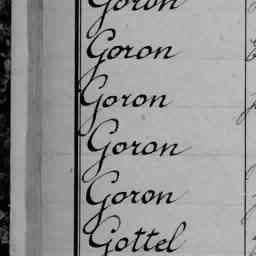 Goron
Goron
Goron
Goron
Goron
Gottel